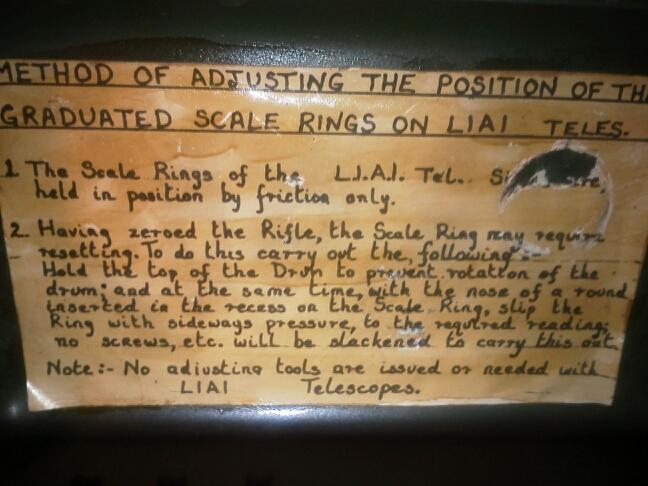 METHOD OF ADJUSTING THE POSITION OF TH
GRADUATED SCALE RINGS ON LIAI TELES.
1. The Scale Rings of the L.I.A.I. Tel.
held in position by friction only.
2. Having zeroed the Rifle, the Scale Ring may require
resetting. To do this carry out the, following :-
Hold the top of the Drum to prevent rotation of the
drum; and at the same time, with the nose of a round
inserted in the recess on the Scale Ring, slip the
Ring with sideways pressure, to the required reading;
no screws, etc. will be slackened to carry this out.
Note :- No adjusting tools are issued or needed with
LIAI Telescopes.